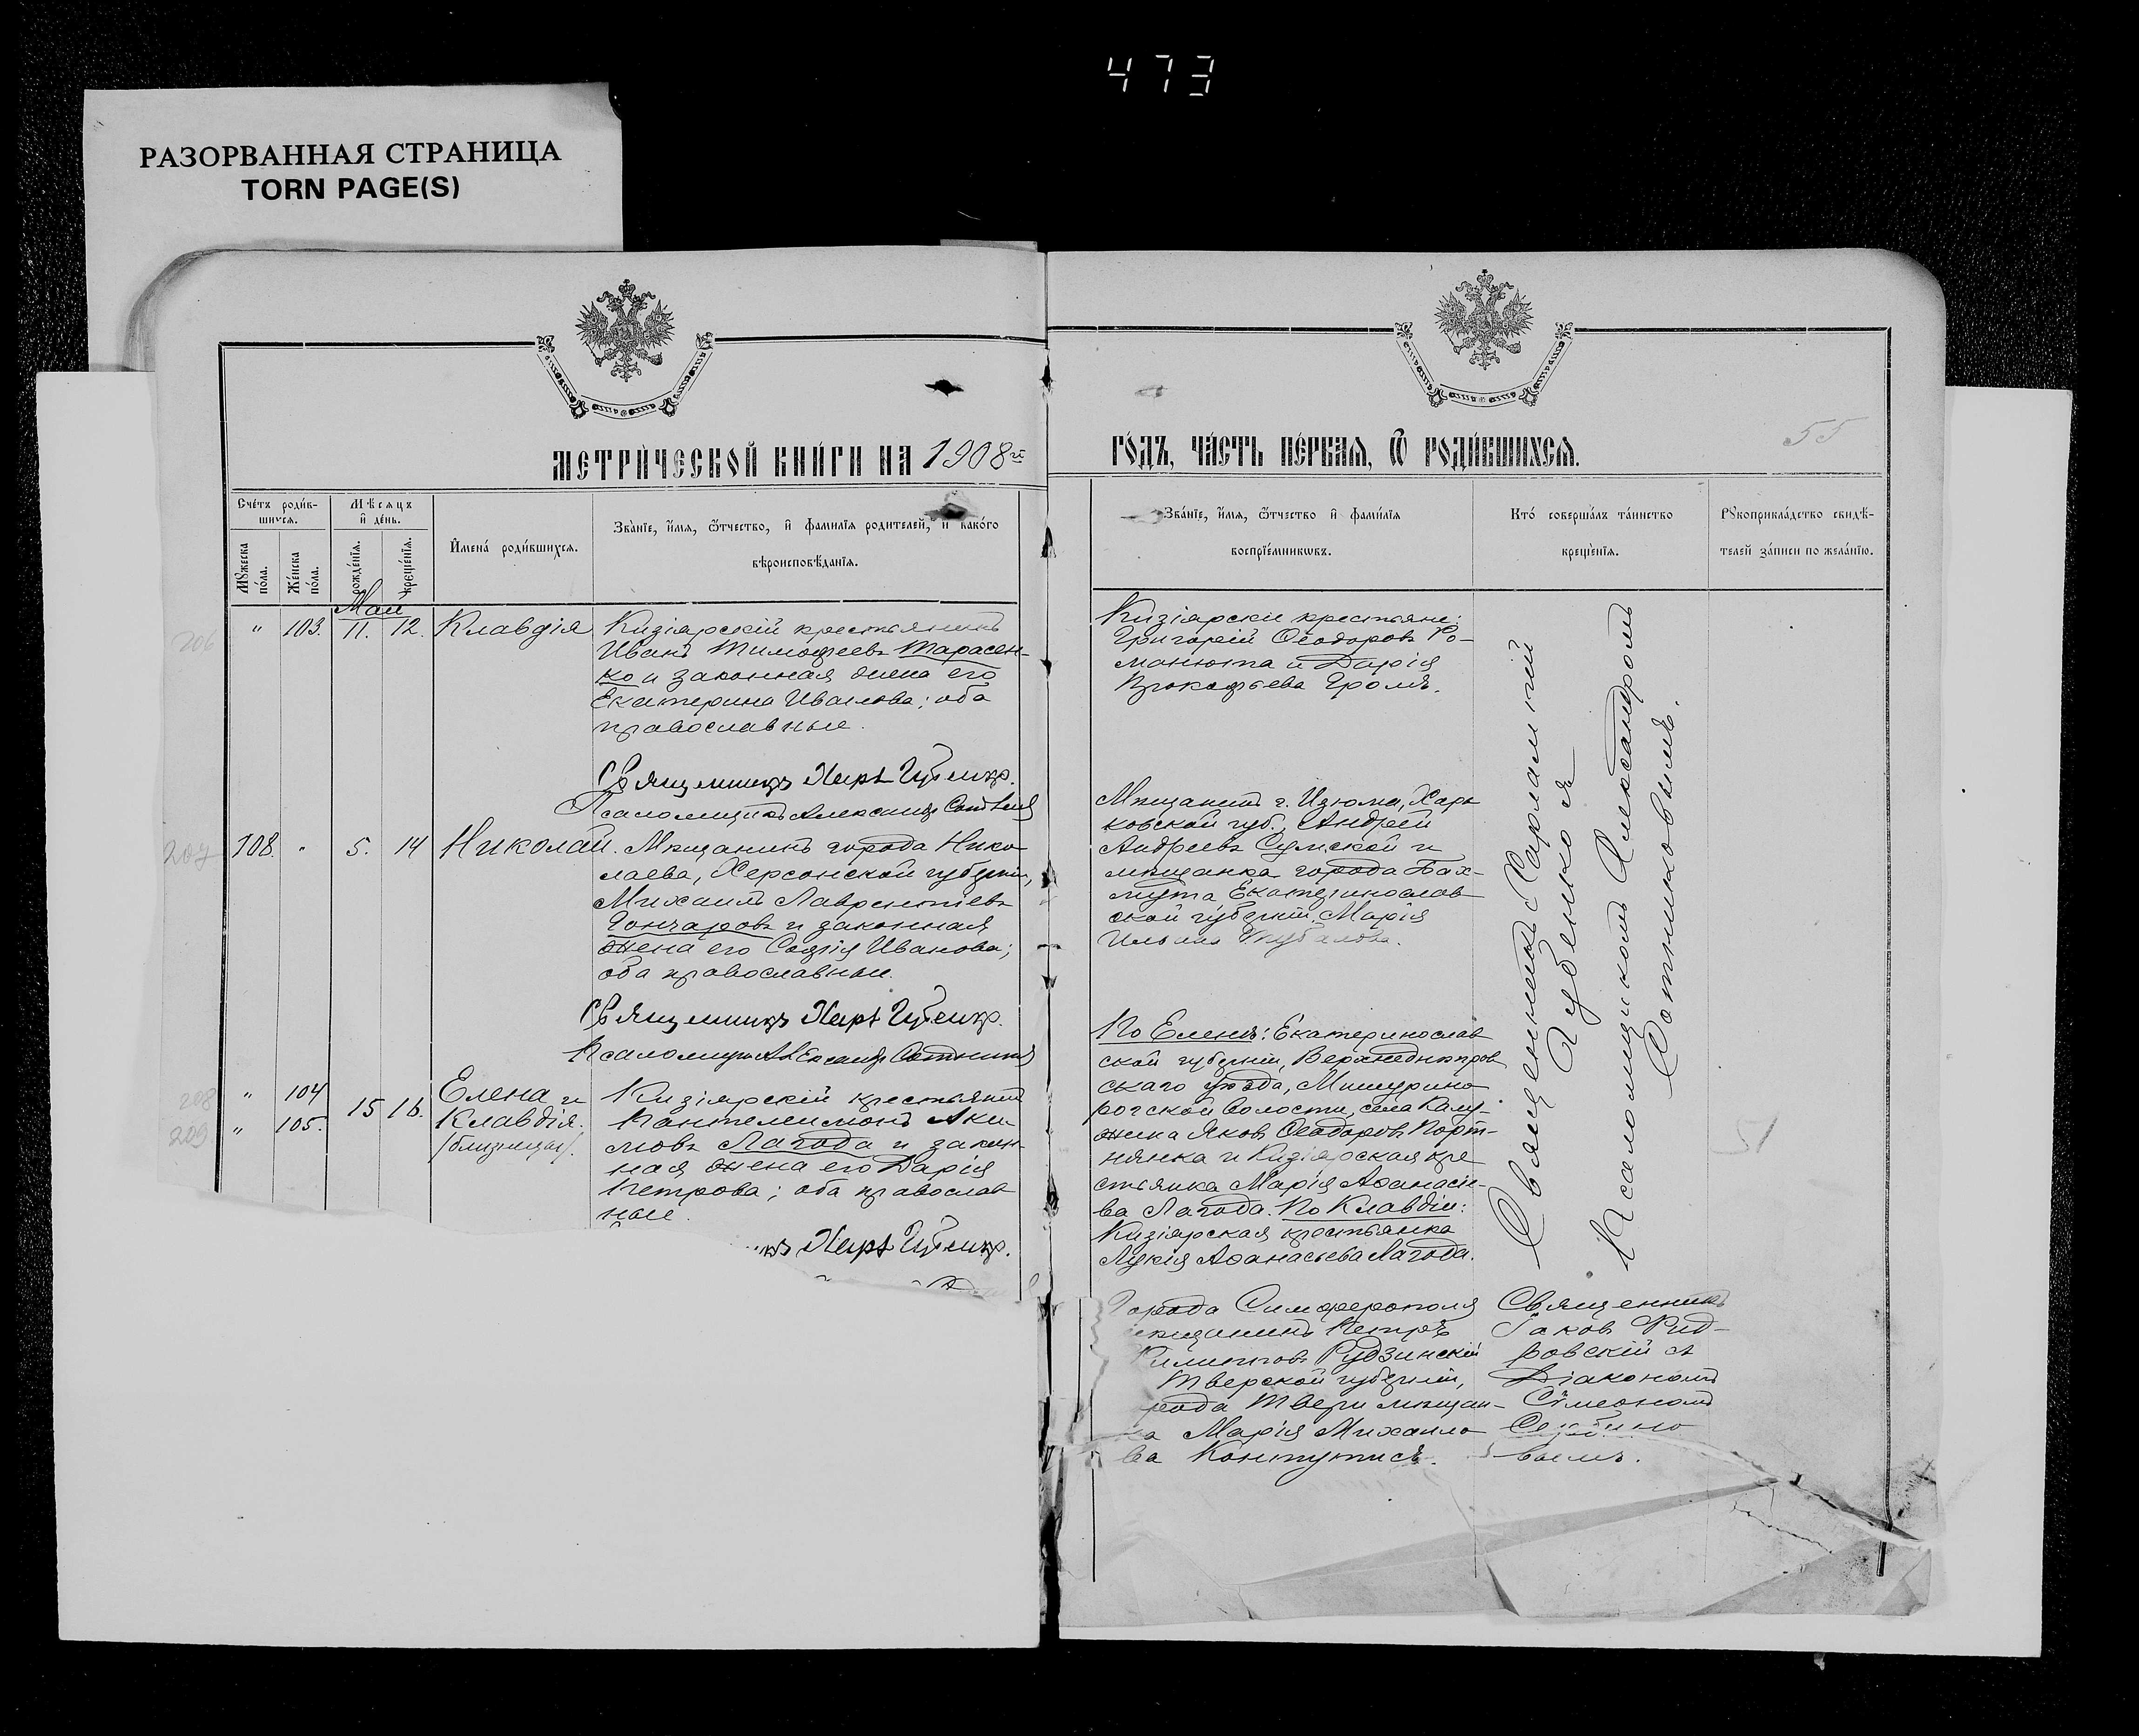 473
РАЗОРВАННАЯ СТРАНИЦА
TORN PAGE(S)
МЕТРИ́ЧЕСКОЙ КНИ́ГИ НА 1908й
ГО́ДЪ, ЧА́СТЬ ПЕ́РВАЯ, Ѿ РОДИ́ВШИХСЯ.
55
Сче́тъ роди́в-
шихся.
Мѣ́сяцъ
и҆ де́нь.
Мꙋжеска
по́ла.
Же́нска
по́ла.
рожде́нїя.
креще́нїя.
И҆мена̀ роди́вшихся.
Зва́нїе, и҆́мя, ѻ҆́тчество, и҆ фами́лїя родителей, и҆ како́го
вѣроисповѣ́данїя.
Зва́нїе, и҆́мя, ѻ҆́тчество и҆ фами́лїя
воспрїе́мникѡвъ.
Кто́ соверша́лъ та́инство
креще́нїя.
Рꙋкоприкла́дство свидѣ́-
телей за́писи по жела́нїю.
Май
206 " 103. 11. 12. Клавдія
Кизіярскій крестьянинъ
Иванъ Тимофеевъ Тарасен-
ко и законная жена его
Екатерина Иванова; оба
православные.
Священникъ Харл. Губенко.
Псаломщикъ Александр Сотников
Кизіярскіе крестьяне:
Григорій Ѳеодоровъ Ро-
манюта и Дарія
Прокофьева Громъ.
207 108. " 5. 14 Николай.
Мѣщанинъ города Нико-
лаева, Херсонской губерніи,
Михаилъ Лаврентіевъ
Гончаровъ и законная
жена его Софія Иванова;
оба православные.
Священникъ Харл. Губенко.
Псаломщикъ Александр Сотников
Мѣщанинъ г. Изюма, Харь
ковской губ., Андрей
Андреевъ Сумской и
мѣщанка города Бах-
мута Екатеринослав
ской губерніи, Марія
208 " 104
209 " 105. 15 16.
Елена и
Клавдія.
/близнецы/.
Кизіярскій крестьянинъ
Пантелеимонъ Аки-
мовъ Лагода и закон-
ная жена его Дарія
Петрова; оба православ
ные.
икъ Харл. Губенко.
По Еленѣ: Екатеринослав
ской губерніи, Верхнеднѣпров
скаго уѣзда, Мишурино
рогской волости, села Калу-
жина Яковъ Ѳеодоровъ Порт-
нянка и Кизіярская кре
стьянка Марія Аѳанасіе-
ва Лагода. По Клавдіи:
Кизіярская крестьянка
Лукія Аѳанасьева Лагода.
Священникъ Харлампій
Губенко съ
Псаломщикомъ Александромъ
Сотниковымъ.
51
Города Симферополя
мѣщанинъ Петръ
Филипповъ Рудзинскій
Тверской губерніи,
рода Твери мѣщан-
ка Марія Михаило
ва Контутисъ.
Священникъ
Іаковъ Рид-
ровскій съ
Діакономъ
Сѵмеономъ
вымъ.